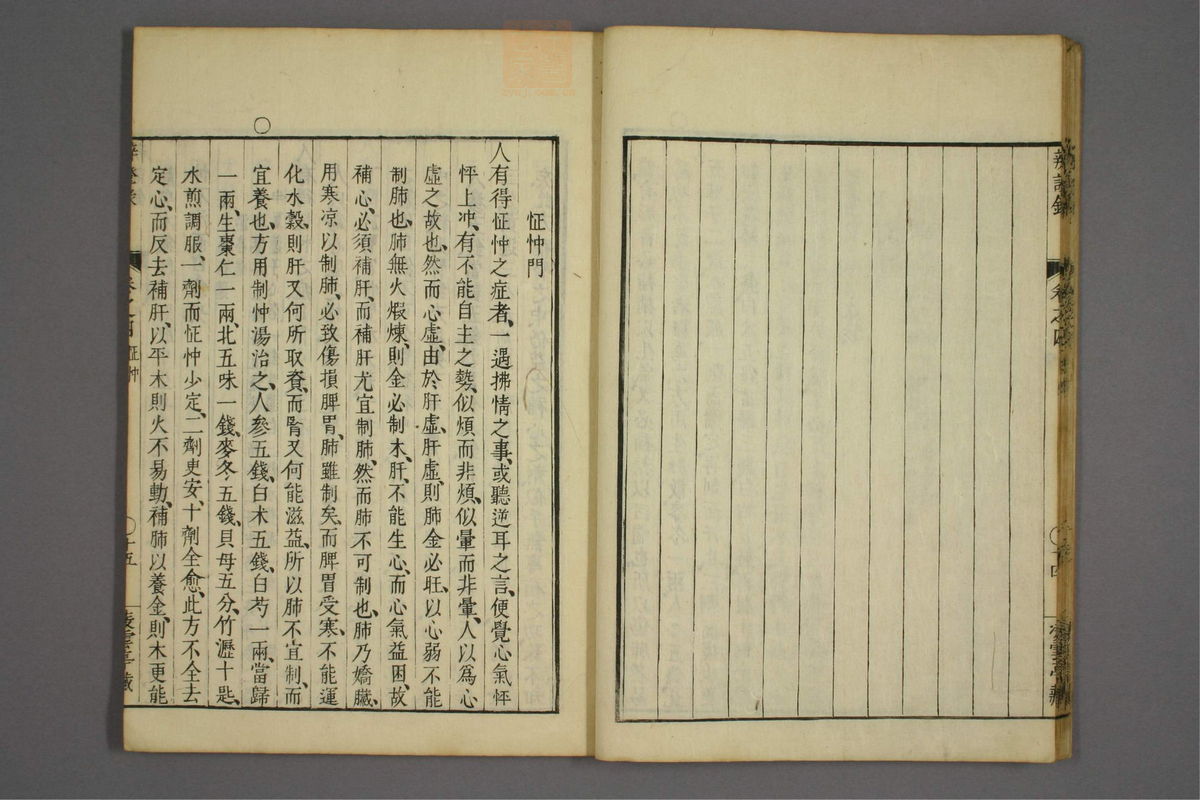 辨證錄 卷之四 十四
怔忡門
人有得怔忡之症者、一遇拂情之事、或聽逆耳之言、便覺心氣怦
怦上冲、有不能自主之勢、似煩而非煩、似暈而非暈、人以爲心
虛之故也、然而心虛、由於肝虛、肝虛、則肺金必旺、以心弱不能
制肺也、肺無火煆煉、則金必制木、肝不能生心、而心氣益困、故
補心、必須補肝、而補肝尤宜制肺、然而肺不可制也、肺乃嬌臟、
用寒凉以制肺、必致傷損脾胃、肺雖制矣、而脾胃受寒、不能運
化水穀、則肝又何所取資、而腎又何能滋益、所以肺不宜制、而
宜養也、方用制忡湯治之、人參五錢、白术五錢、白芍一兩、當歸
一兩、生棗仁一兩、北五味一錢、麥冬五錢、貝母五分、竹瀝十匙、
水煎調服、一劑而怔忡少定、二劑更安、十劑全愈、此方不全去
定心、而反去補肝、以平木則火不易動、補肺以養金、則木更能
卷之四 怔忡 十五